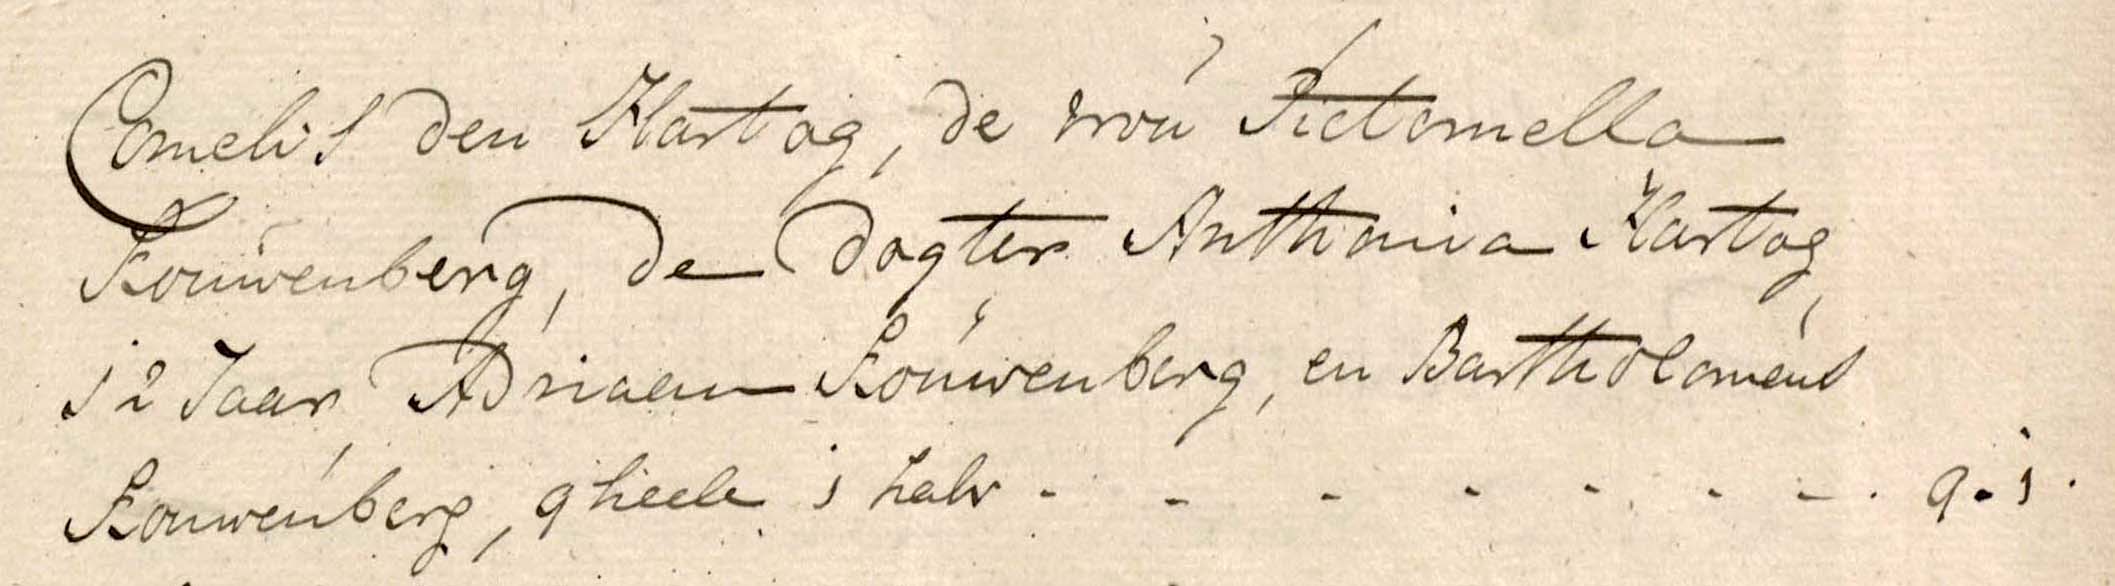 Cornelis den Hartog, de vrou Pieternella
Kouwenberg, de dogter Anthonia Hartog,
12 Jaar, Adriaen Kouwenberg, en Bartholomeus
Kouwenberg, 9 heele 1 halv - - - - - - - . 9.1.